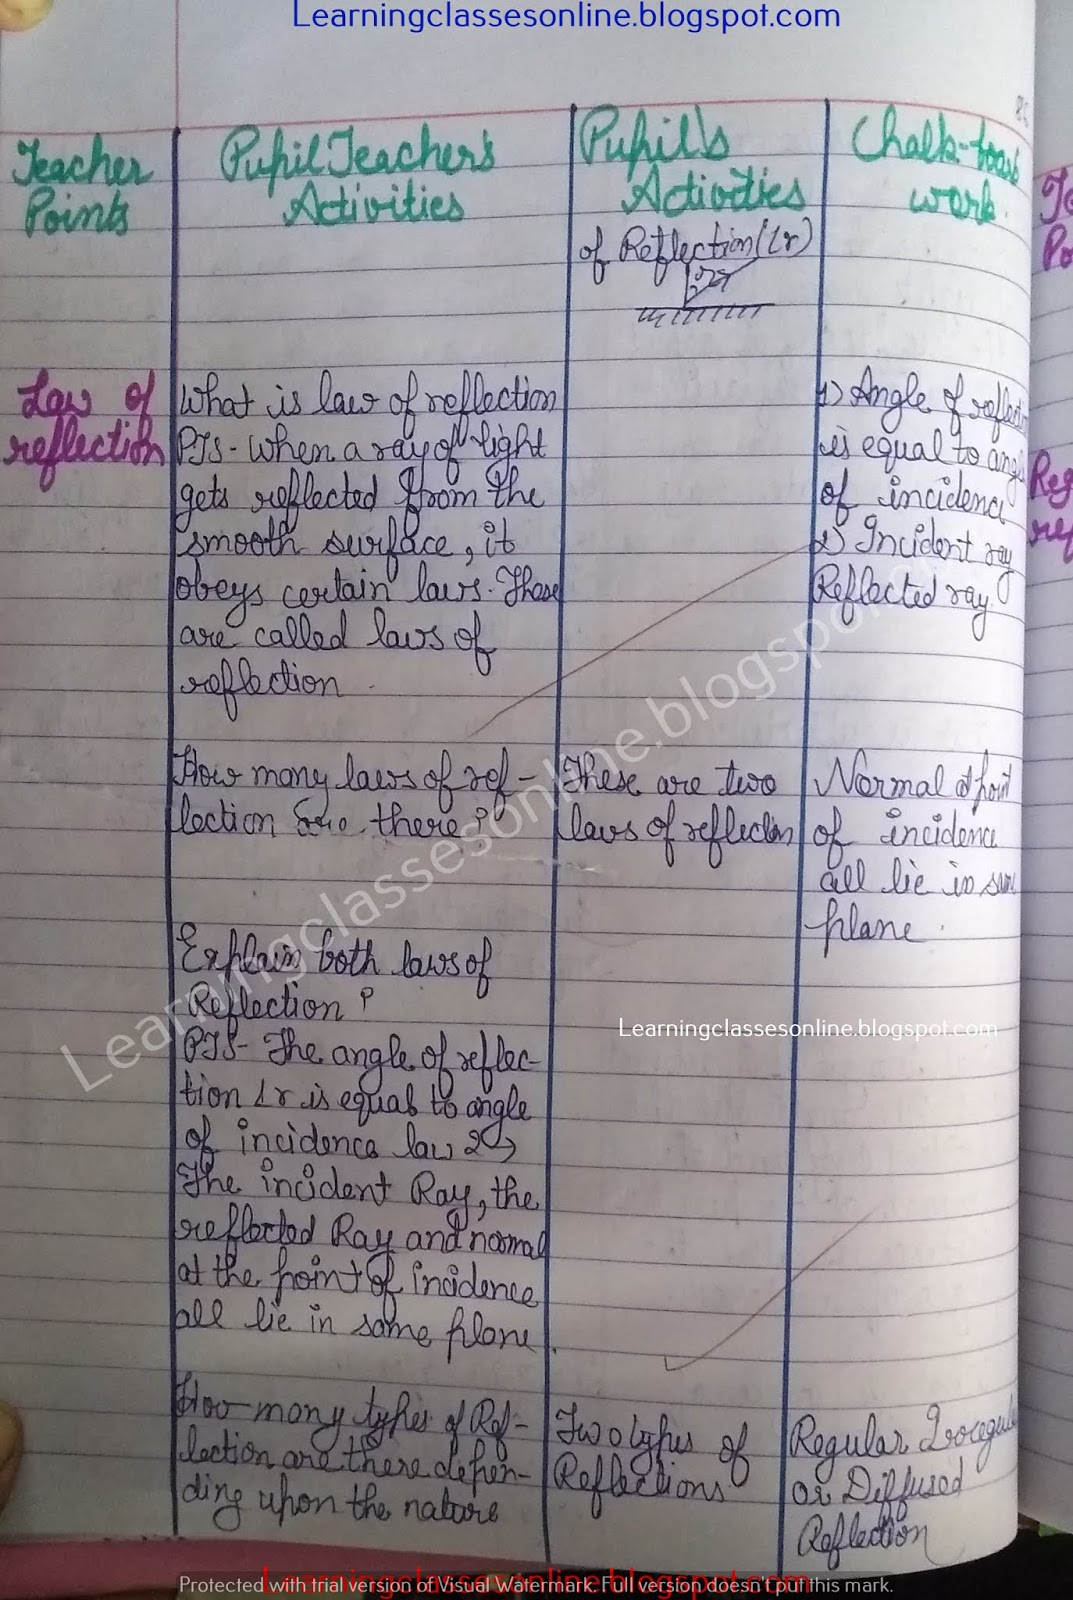 Learningclassesonline.blogspot.com
Teacher
Points
Pupil Teacher's
Activities
Pupil's
Activities
Chalk-board
work.
of Reflection (∠r)
Law of
reflection
What is law of reflection
PTS- When a ray of light
gets reflected from the
smooth surface, it
obeys certain laws. These
are called laws of
reflection.
1) Angle of reflection
is equal to angle
of incidence
2) Incident ray
Reflected ray.
How many laws of ref-
lection are there?
These are two
laws of reflection
Normal & point
of incidence
all lie in same
plane.
Explain both laws of
Reflection?
PTS- The angle of reflec-
tion ∠r is equal to angle
of incidence law 2→
The incident Ray, the
reflected Ray and normal
at the point of incidence
all lie in same plane.
How many types of Ref-
lection are there depen-
ding upon the nature
Two types of
Reflections
Regular Irregular
or Diffused
Reflection
Learningclassesonline.blogspot.com
Learningclassesonline.blogspot.com
Learningclassesonline.blogspot.com
Protected with trial version of Visual Watermark. Full version doesn't put this mark.